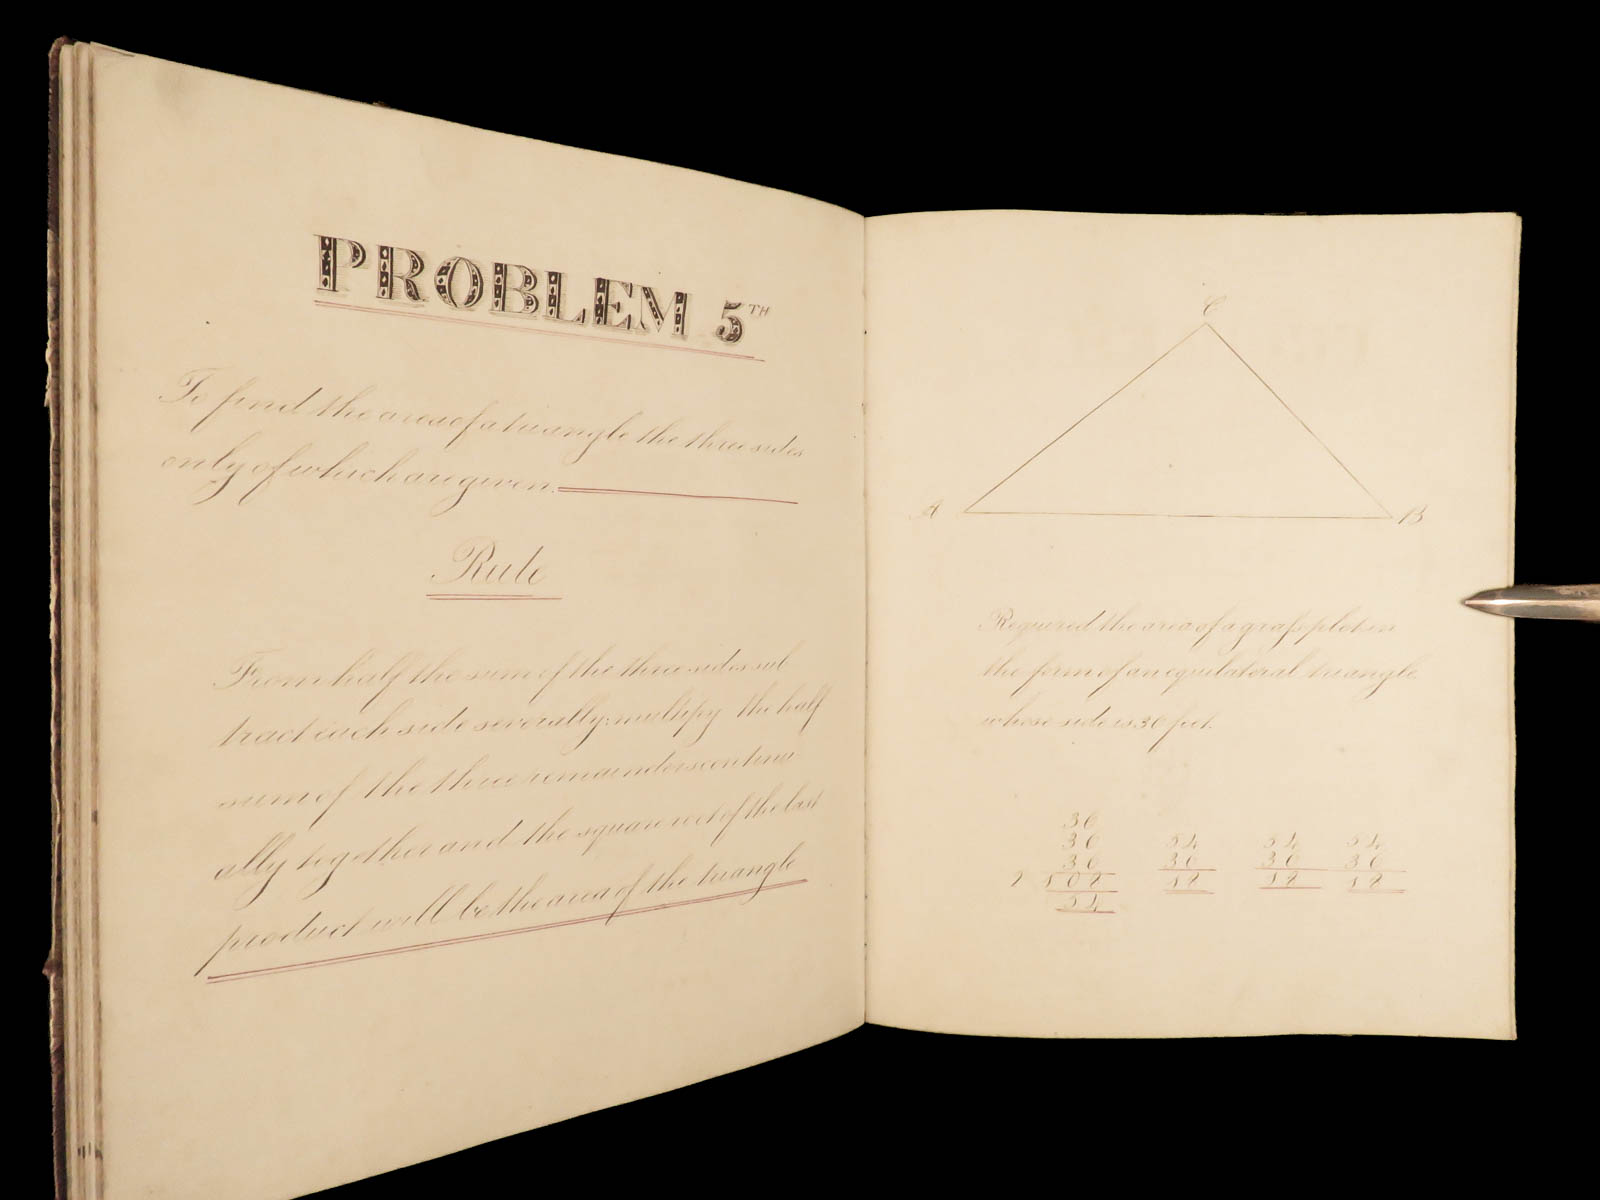 PROBLEM 5TH
To find the area of a triangle the three sides
only of which are given.
Rule
From half the sum of the three sides sub
tract each side severally: multiply the half
sum of the three remainders continu
ally together and the square root of the last
product will be the area of the triangle
C
A B
Required the area of a grass plot in
the form of an equilateral triangle
whose side is 36 feet.
36
36 54 54 54
36 36 36 36
2 108 18 18 18
54